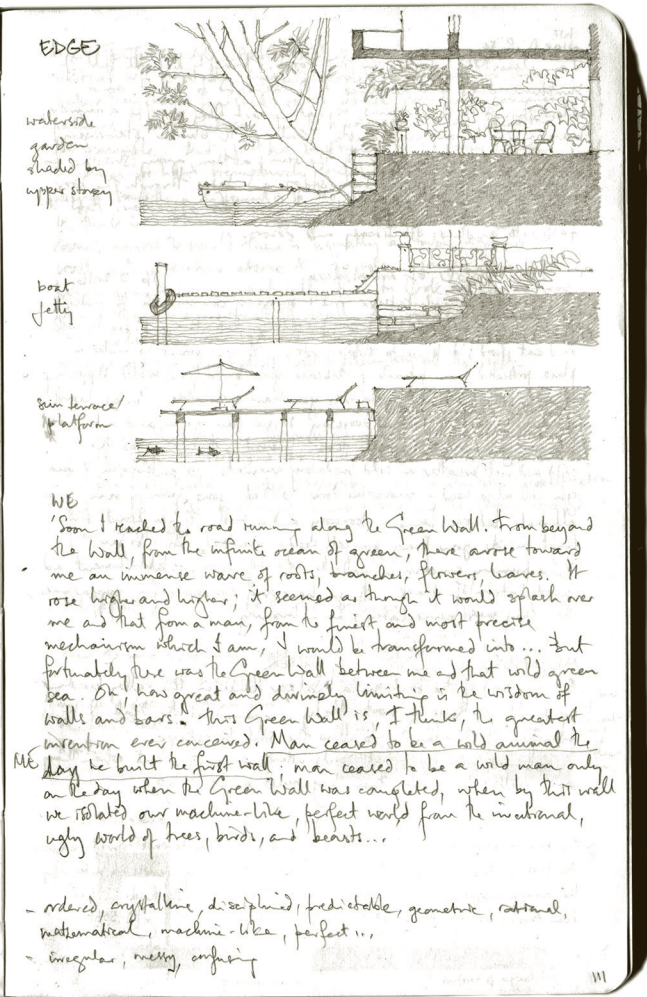 EDGE
waterside
garden
shaded by
upper storey
boat
jetty
sun terrace/
platform
WE
'Soon I reached the road running along the Green Wall. From beyond
the Wall, from the infinite ocean of green, there arose toward
me an immense wave of roots, branches, flowers, leaves. It
rose higher and higher; it seemed as though it would splash over
me and that from a man, from the finest and most precise
mechanism which I am, I would be transformed into... But
fortunately there was the Green Wall between me and that wild green
sea. Oh, how great and divinely limiting is the wisdom of
walls and bars! This Green Wall is, I think, the greatest
invention ever conceived. Man ceased to be a wild animal the
ME day he built the first wall; man ceased to be a wild man only
on the day when the Green Wall was completed, when by this wall
we isolated our machine-like, perfect world from the irrational,
ugly world of trees, birds, and beasts...
- ordered, crystalline, disciplined, predictable, geometric, rational,
mathematical, machine-like, perfect...
- irregular, messy, confusing
111